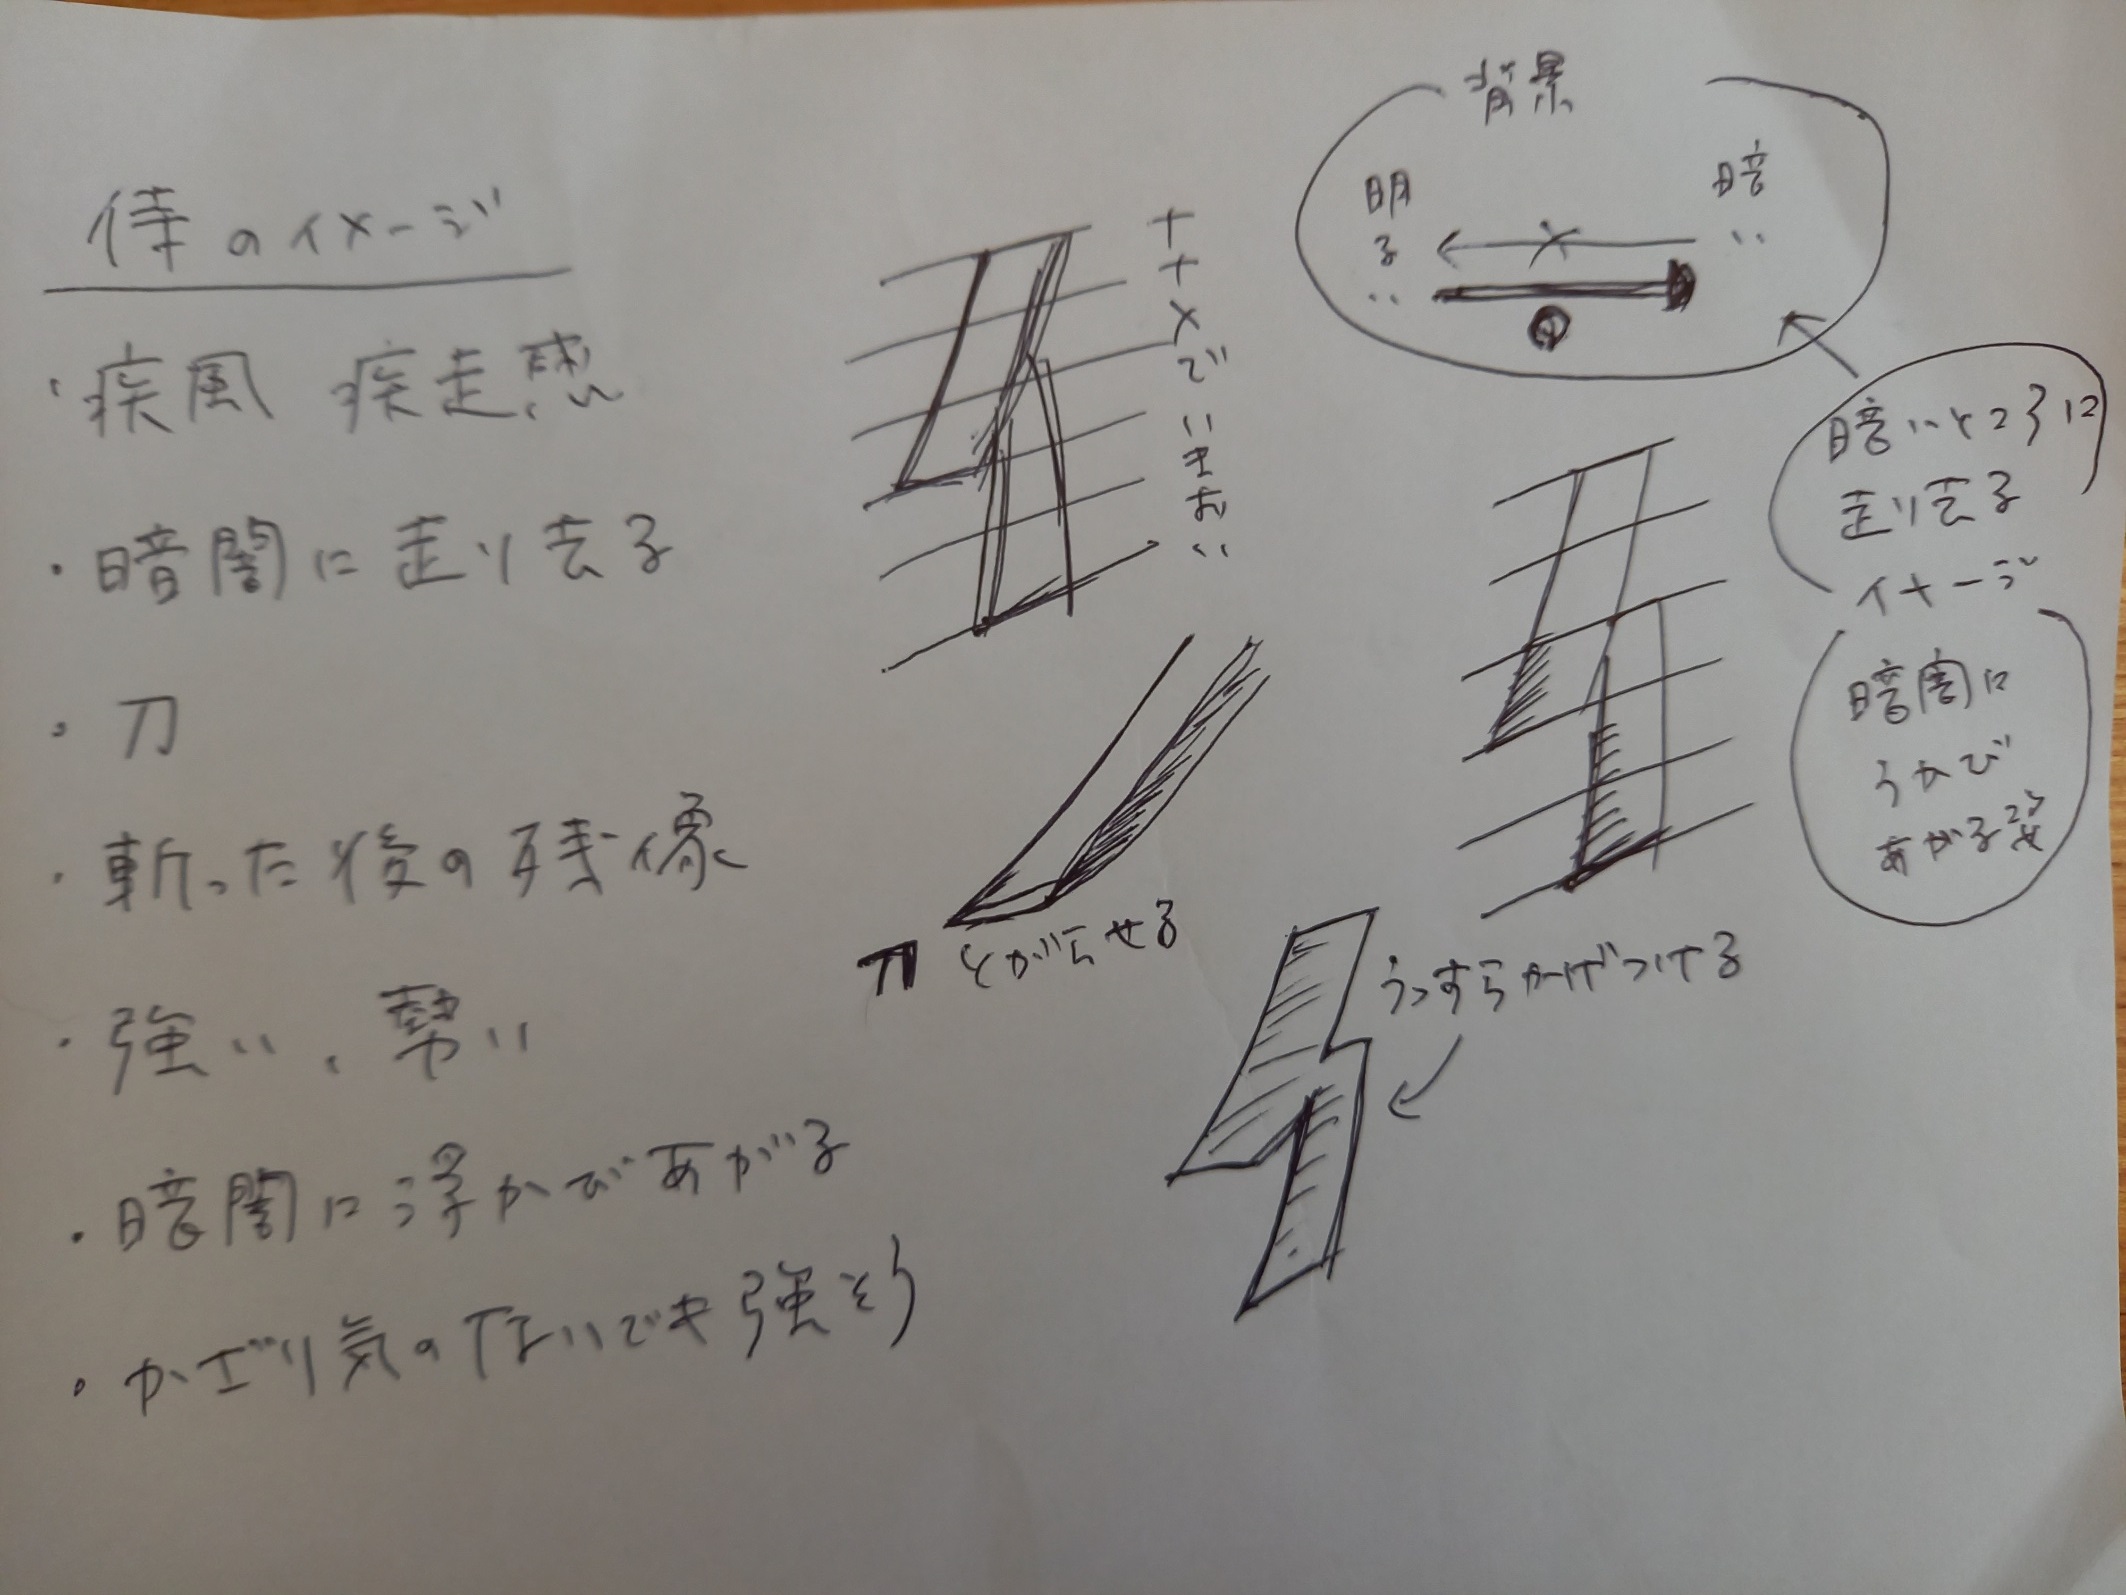 侍のイメージ
・疾風 疾走感
・暗闇に走り去る
・刀
・斬った後の残像
・強い、勢い
・暗闇に浮かびあがる
・かざり気のないでも強そう
ナナメでいきおい
背景
明るい
暗い
暗いところに
走り去る
イメージ
暗闇に
うかび
あがる姿
刀 とがらせる
うっすらかげつける